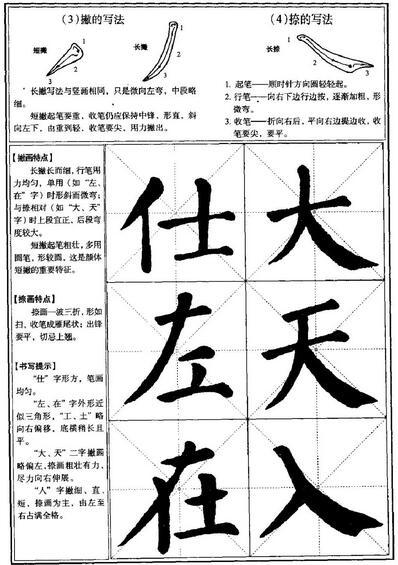 (3)撇的写法
短撇
1
2
3
长撇
1
2
3
长撇写法与竖画相同，只是微向左弯，中段略
细。
短撇起笔要重，收笔仍应保持中锋，形直，斜
向左下，由重到轻，收笔要尖，用力撇出。
(4)捺的写法
长捺
1
2
3
1. 起笔——顺时针方向圆轻轻起。
2. 行笔——向右下边行边按，逐渐加粗，形
微弯。
3. 收笔——折向右后，平向右边提边收，收
笔要尖，要平。
【撇画特点】
长撇长而细，行笔用
力均匀，单用（如“左、
在”字）时形斜而微弯；
与捺相对（如“大、天”
字）时上段宜正，后段弯
度较大。
短撇起笔粗壮，多用
圆笔，形较圆，这是颜体
短撇的重要特征。
【捺画特点】
捺画一波三折，形如
扫，收笔成雁尾状；出锋
要平，切忌上翘。
【书写提示】
“仕”字形方，笔画
均匀。
“左、在”字外形近
似三角形，“工、土”略
向右偏移，底横稍长且
平。
“大、天”二字撇画
略偏左，捺画粗壮有力，
尽力向右伸展。
“人”字撇细、直、
短，捺画为主，由左至
右占满全格。
仕 大
左 天
在 入